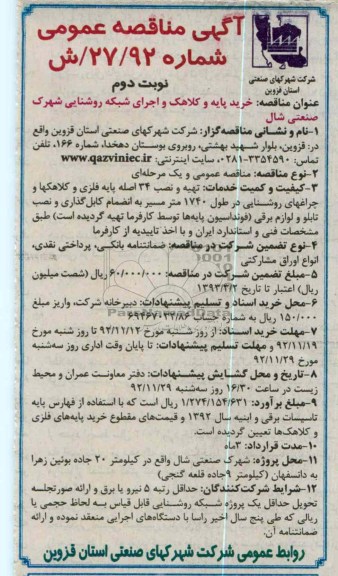 آگهی مناقصه عمومی
شماره ۲۷/۹۲/ش
نوبت دوم
شرکت شهرکهای صنعتی
استان قزوین
عنوان مناقصه: خرید پایه و کلاهک و اجرای شبکه روشنایی شهرک
صنعتی شال
۱-نام و نشانی مناقصه‌گزار: شرکت شهرکهای صنعتی استان قزوین واقع
در: قزوین، بلوار شهید بهشتی، روبروی بوستان دهخدا، شماره ۱۶۶، تلفن
تماس: ۳۳۵۴۵۹۰-۰۲۸۱، سایت اینترنتی: www.qazviniec.ir
۲-نوع مناقصه: مناقصه عمومی و یک مرحله‌ای
۳-کیفیت و کمیت خدمات: تهیه و نصب ۳۴ اصله پایه فلزی و کلاهکها و
چراغهای روشنایی در طول ۱۷۴۰ متر مسیر به انضمام کابل‌گذاری و نصب
تابلو و لوازم برقی (فونداسیون پایه‌ها توسط کارفرما تهیه گردیده است) طبق
مشخصات فنی و استاندارد ایران و با اخذ تاییدیه از کارفرما
۴-نوع تضمین شرکت در مناقصه: ضمانتنامه بانکی، پرداختی نقدی،
انواع اوراق مشارکتی
۵-مبلغ تضمین شرکت در مناقصه: ۶۰/۰۰۰/۰۰۰ ریال (شصت میلیون
ریال) اعتبار تا تاریخ ۱۳۹۳/۳/۲
۶-محل خرید اسناد و تسلیم پیشنهادات: دبیرخانه شرکت، واریز مبلغ
۱۵۰/۰۰۰ ریال به شماره حساب
۷-مهلت خرید اسناد: از روز شنبه مورخ ۹۲/۱۱/۱۲ تا روز شنبه مورخ
۹۲/۱۱/۱۹ و مهلت تسلیم پیشنهادات: تا پایان وقت اداری روز سه‌شنبه
مورخ ۹۲/۱۱/۲۹
۸-تاریخ و محل گشایش پیشنهادات: دفتر معاونت عمران و محیط
زیست در ساعت ۱۶/۳۰ روز سه‌شنبه ۹۲/۱۱/۲۹
۹-مبلغ برآورد: ۱/۲۷۴/۱۵۴/۶۳۱ ریال است که با استفاده از فهارس پایه
تاسیسات برقی و ابنیه سال ۱۳۹۲ و قیمت‌های مقطوع خرید پایه‌های فلزی
و کلاهک‌ها تعیین گردیده است.
۱۰-مدت قرارداد: ۳ماه
۱۱-محل پروژه: شهرک صنعتی شال واقع در کیلومتر ۲۰ جاده بوئین زهرا
به دانسفهان (کیلومتر ۹جاده قلعه گنجی)
۱۲-شرایط شرکت‌کنندگان: حداقل رتبه ۵ نیرو یا برق و ارائه صورتجلسه
تحویل حداقل یک پروژه شبکه روشنایی قابل قیاس به لحاظ حجمی یا
ریالی که طی پنج سال اخیر راسا با دستگاه‌های اجرایی منعقد نموده و ارائه
ضمانتنامه آن.
روابط عمومی شرکت شهرکهای صنعتی استان قزوین